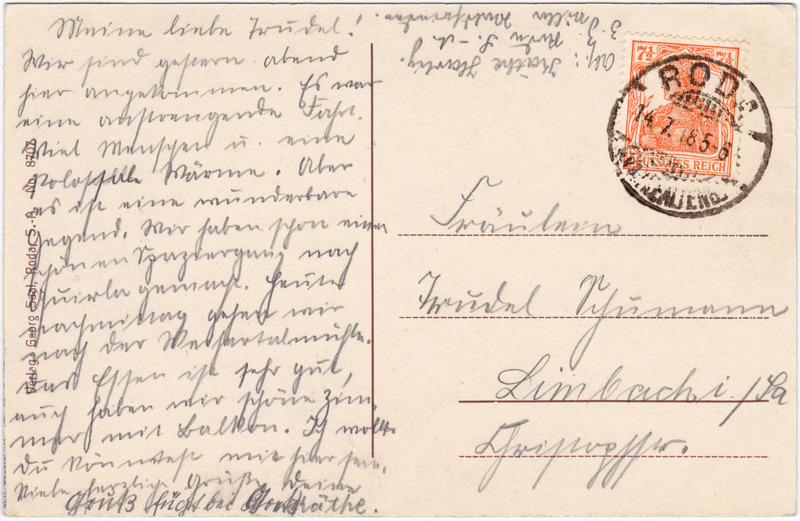 Meine liebe Trudel!
Wir sind gestern abend
hier angekommen. Es war
eine anstrengende Fahrt.
Viel Menschen u. eine
kolossale Wärme. Aber
es ist eine wunderbare
Gegend. Wir haben schon einen
schönen Spaziergang nach
Quirla gemacht. Heute
nachmittag gehen wir
nach der Meusertalmühle.
Das Essen ist sehr gut,
auch haben wir schöne Zim-
mer mit Balkon. Ich wollte
Du könntest mit hier sein.
Viele herzliche Grüße Deine
Käthe.
Gruß fügt bei
Abs: Käthe
Roda S.-A.
Fräulein
Trudel Schumann
Limbach i/Sa
Christophstr.
Verlag: Georg Saal, Roda, S.-A. No. 8707
7½ 7½
DEUTSCHES REICH
RODA
14.7.18.5-6
(S.ALTENB.)